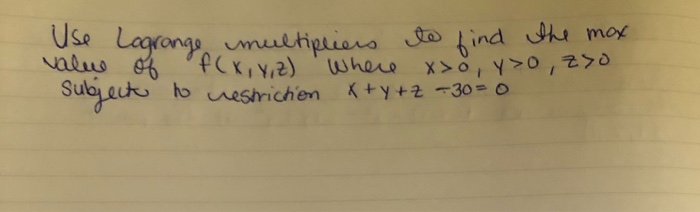 Use Lagrange multipliers to find the max
value of f(x,y,z) where x>0, y>0, z>0
subject to restriction x+y+z-30=0